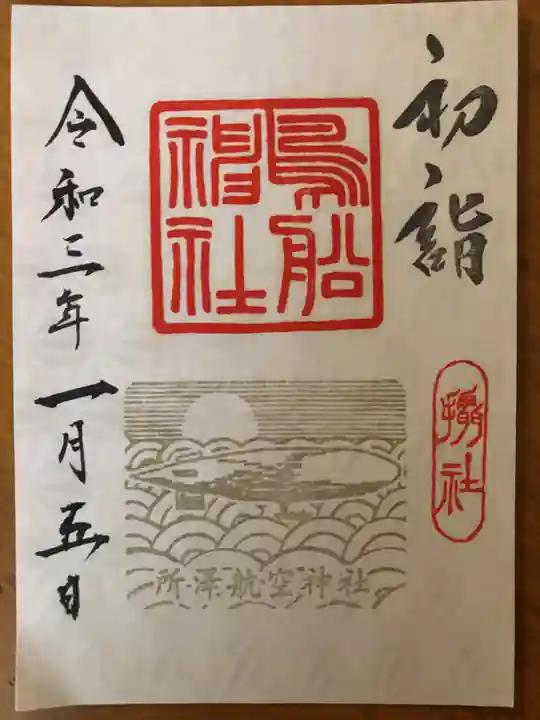 初詣
摂社
鳥船
神社
令和三年一月五日
所澤航空神社